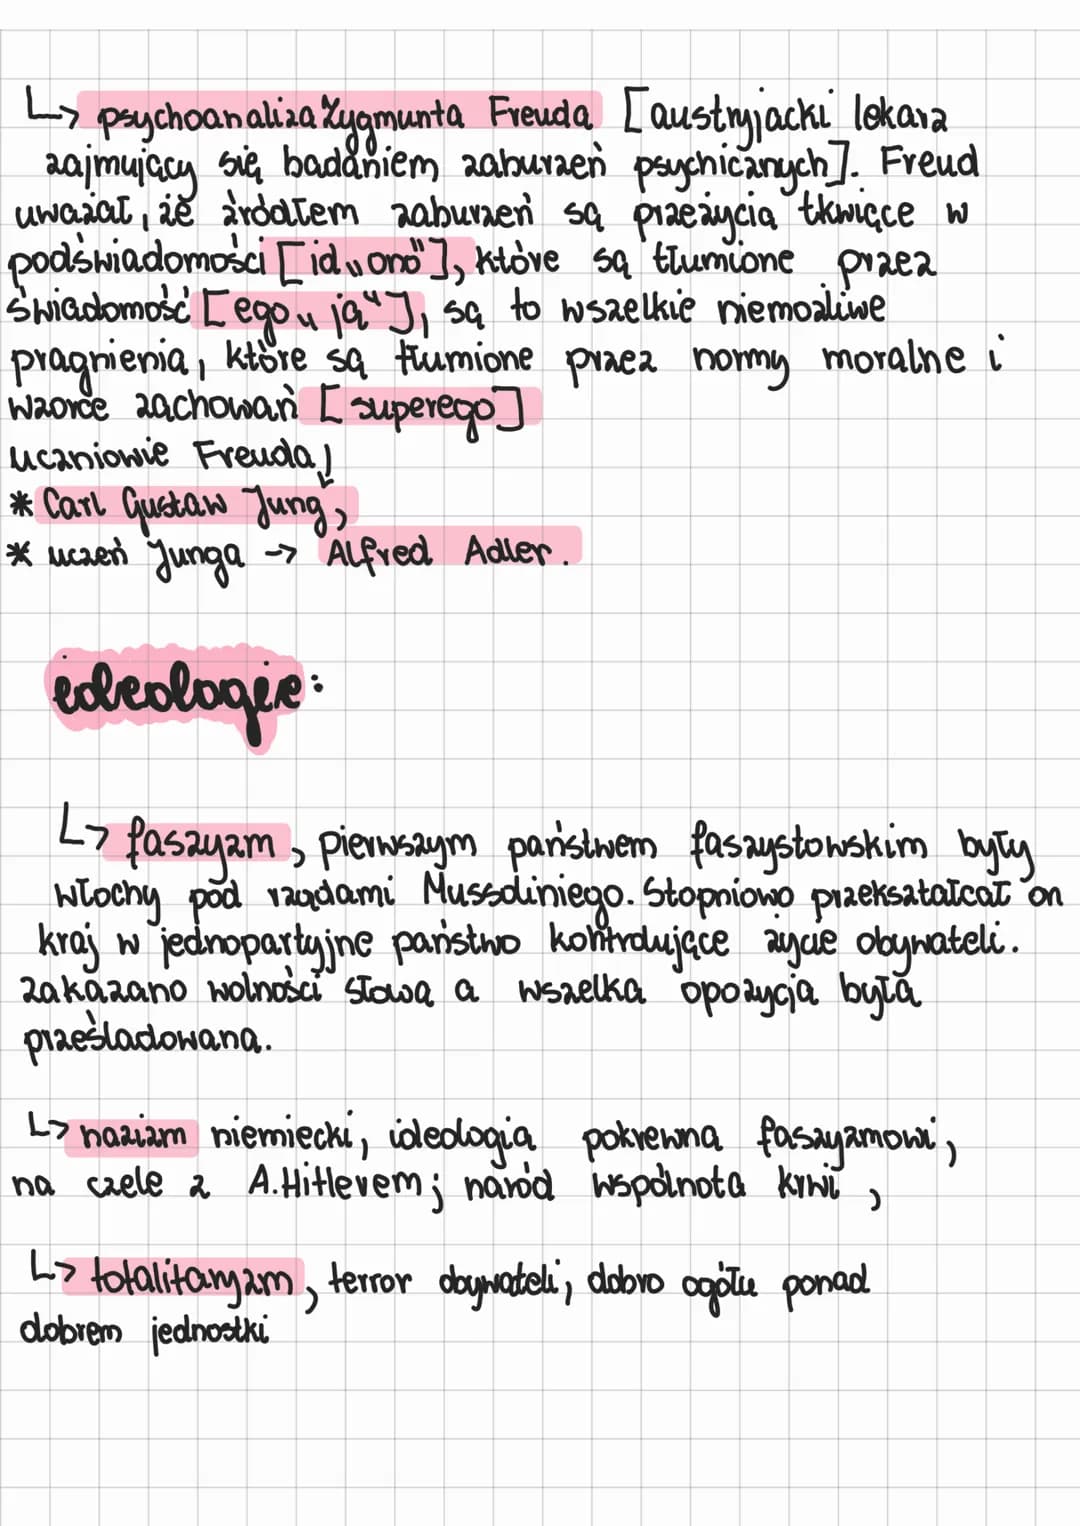 ↳ psychoanaliza Zygmunta Freuda [austryjacki lekarz
zajmujący się badaniem zaburzeń psychicznych]. Freud
uważał, że źródłem zaburzeń są przeżycia tkwiące w
podświadomości [id „ono"], które są tłumione przez
świadomość [ego „ja"], są to wszelkie niemożliwe
pragnienia, które są tłumione przez normy moralne i
wzorce zachowań [superego]
uczniowie Freuda ↓
* Carl Gustaw Jung,
* uczeń Junga -> Alfred Adler.
ideologie:
↳ faszyzm, pierwszym państwem faszystowskim były
Włochy pod rządami Mussoliniego. Stopniowo przekształcał on
kraj w jednopartyjne państwo kontrolujące życie obywateli.
zakazano wolności słowa a wszelka opozycja była
prześladowana.
↳ nazizm niemiecki, ideologia pokrewna faszyzmowi,
na czele z A.Hitlerem; naród wspólnota krwi,
↳ totalitaryzm, terror obywateli, dobro ogółu ponad
dobrem jednostki